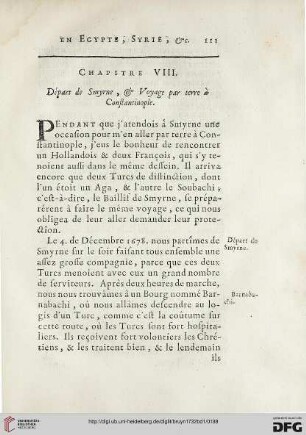 EN EGYPTE, SYRIE, &c. 111
CHAPITRE VIII.
Départ de Smyrne, & Voyage par terre à
Constantinople.
PENDANT que j'atendois à Smyrne une
occasion pour m'en aller par terre à Con-
stantinople, j'eus le bonheur de rencontrer
un Hollandois & deux François, qui s'y te-
noient aussi dans le même dessein. Il arriva
encore que deux Turcs de distinction, dont
l'un étoit un Aga, & l'autre le Soubachi,
c'est-à-dire, le Baillif de Smyrne, se prépa-
rérent à faire le même voyage, ce qui nous
obligea de leur aller demander leur prote-
ction.
Le 4. de Décembre 1678. nous partîmes de
Smyrne sur le soir faisant tous ensemble une
assez grosse compagnie, parce que ces deux
Turcs menoient avec eux un grand nombre
de serviteurs. Après deux heures de marche,
nous nous trouvâmes à un Bourg nommé Bar-
nabachi, où nous allâmes descendre au lo-
gis d'un Turc, comme c'est la coûtume sur
cette route, où les Turcs sont fort hospita-
liers. Ils reçoivent fort volontiers les Chré-
tiens, & les traitent bien, & le lendemain
ils
Départ de
Smyrne.
http://digi.ub.uni-heidelberg.de/diglit/bruyn1732bd1/0139
UNIVERSITÄTS-
BIBLIOTHEK
HEIDELBERG
Gefördert durch die
DFG